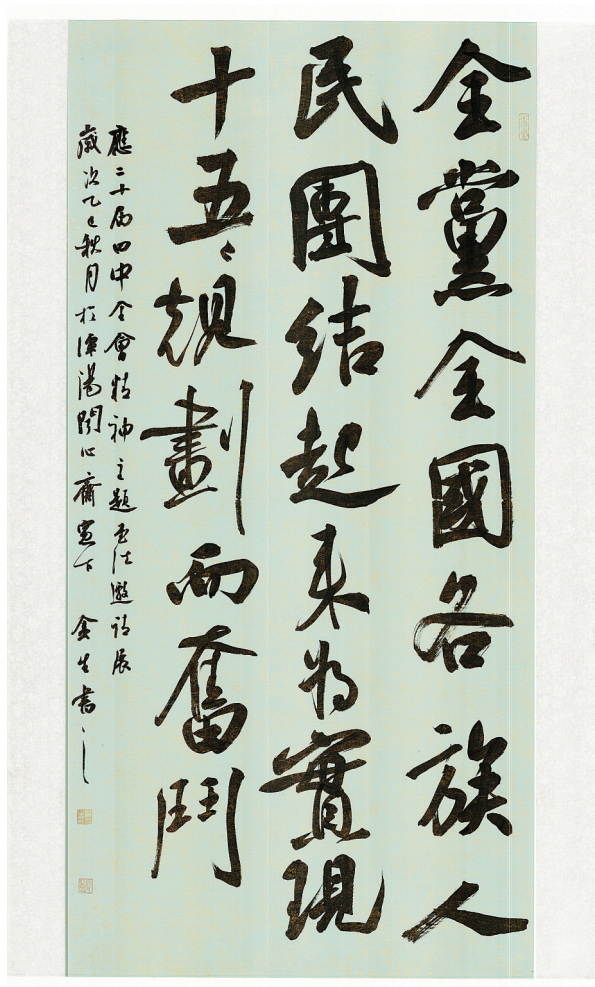 全黨全國各族人
民團結起来为實現
十五五規劃而奮鬥
應二十届四中全會精神主題书法邀请展
歲次乙巳秋月於潭陽問心齋窗下 金生書之